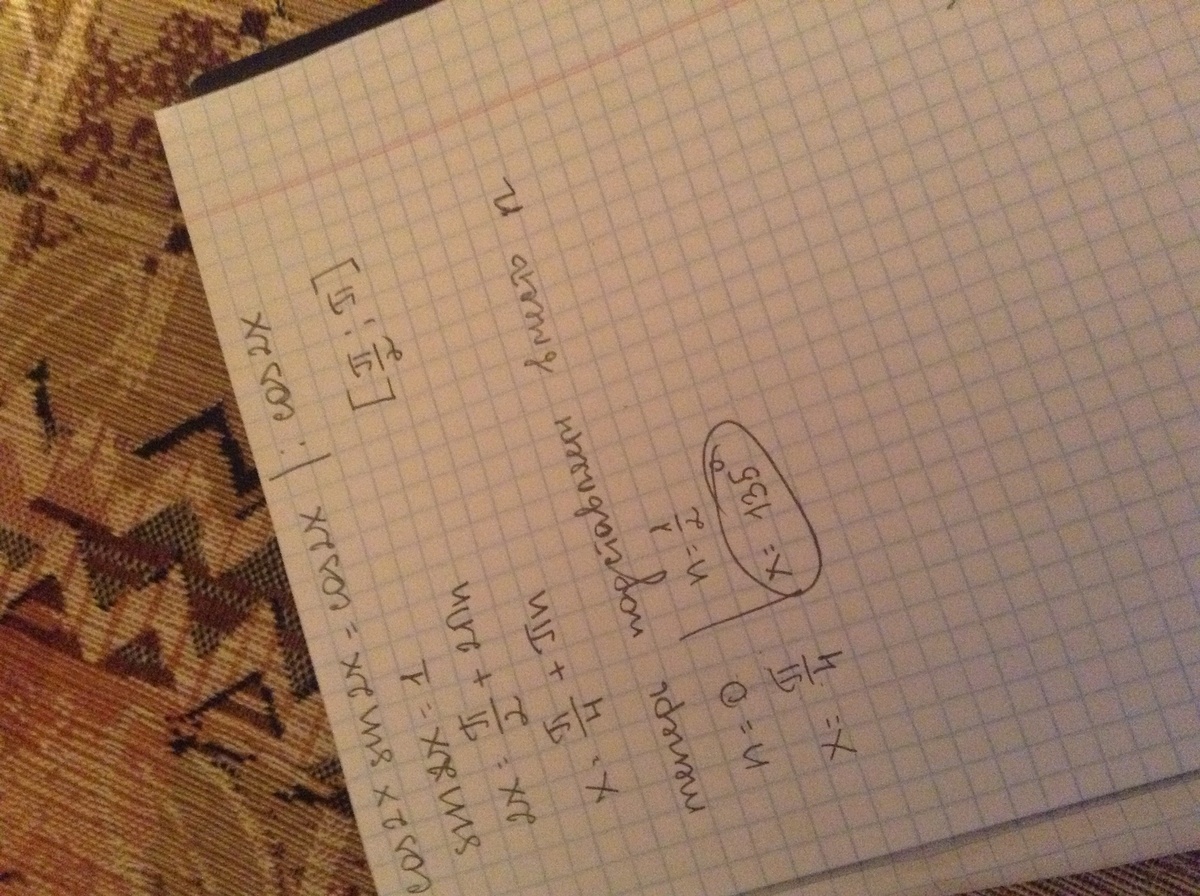 cos 2x sin 2x = cos 2x | : cos 2x
sin 2x = 1 [π/2 ; π]
2x = π/2 + 2πn
x = π/4 + πn
теперь подставляем вместо n
n = 0 | n = 1/2
x = π/4 | x = 135°